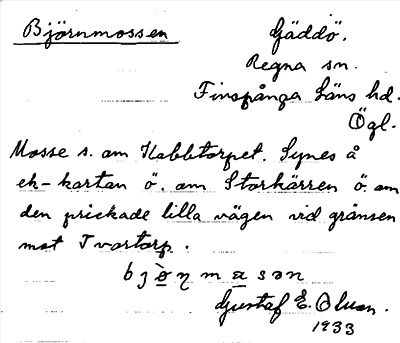 Björnmossen
Gäddö.
Regna sn.
Finspånga Läns hd.
Ögl.
Mosse s. om Kabbtorpet. Synes å
ek-kartan ö. om Storkärren ö. om
den prickade lilla vägen vid gränsen
mot Tvartorp.
Gustaf E. Olson.
1933